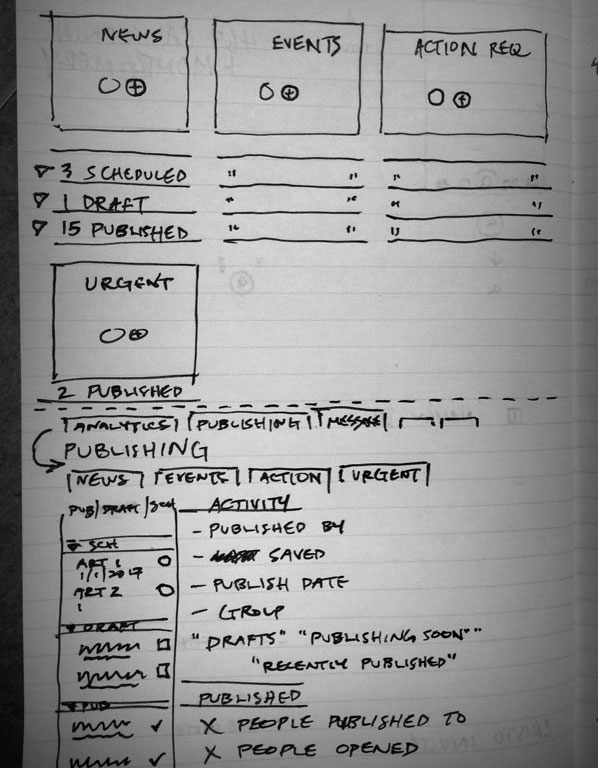 NEWS
EVENTS
ACTION REQ
3 SCHEDULED " " " "
1 DRAFT " " " "
15 PUBLISHED " " " "
URGENT
2 PUBLISHED
ANALYTICS PUBLISHING MESSAGE
PUBLISHING
NEWS EVENTS ACTION URGENT
PUB/DRAFT/SCH
SCH
ART 1
1/1/2017
ART 2
1
DRAFT
PUB
ACTIVITY
- PUBLISHED BY
- SAVED
- PUBLISH DATE
- GROUP
"DRAFTS" "PUBLISHING SOON""
"RECENTLY PUBLISHED"
PUBLISHED
X PEOPLE PUBLISHED TO
X PEOPLE OPENED